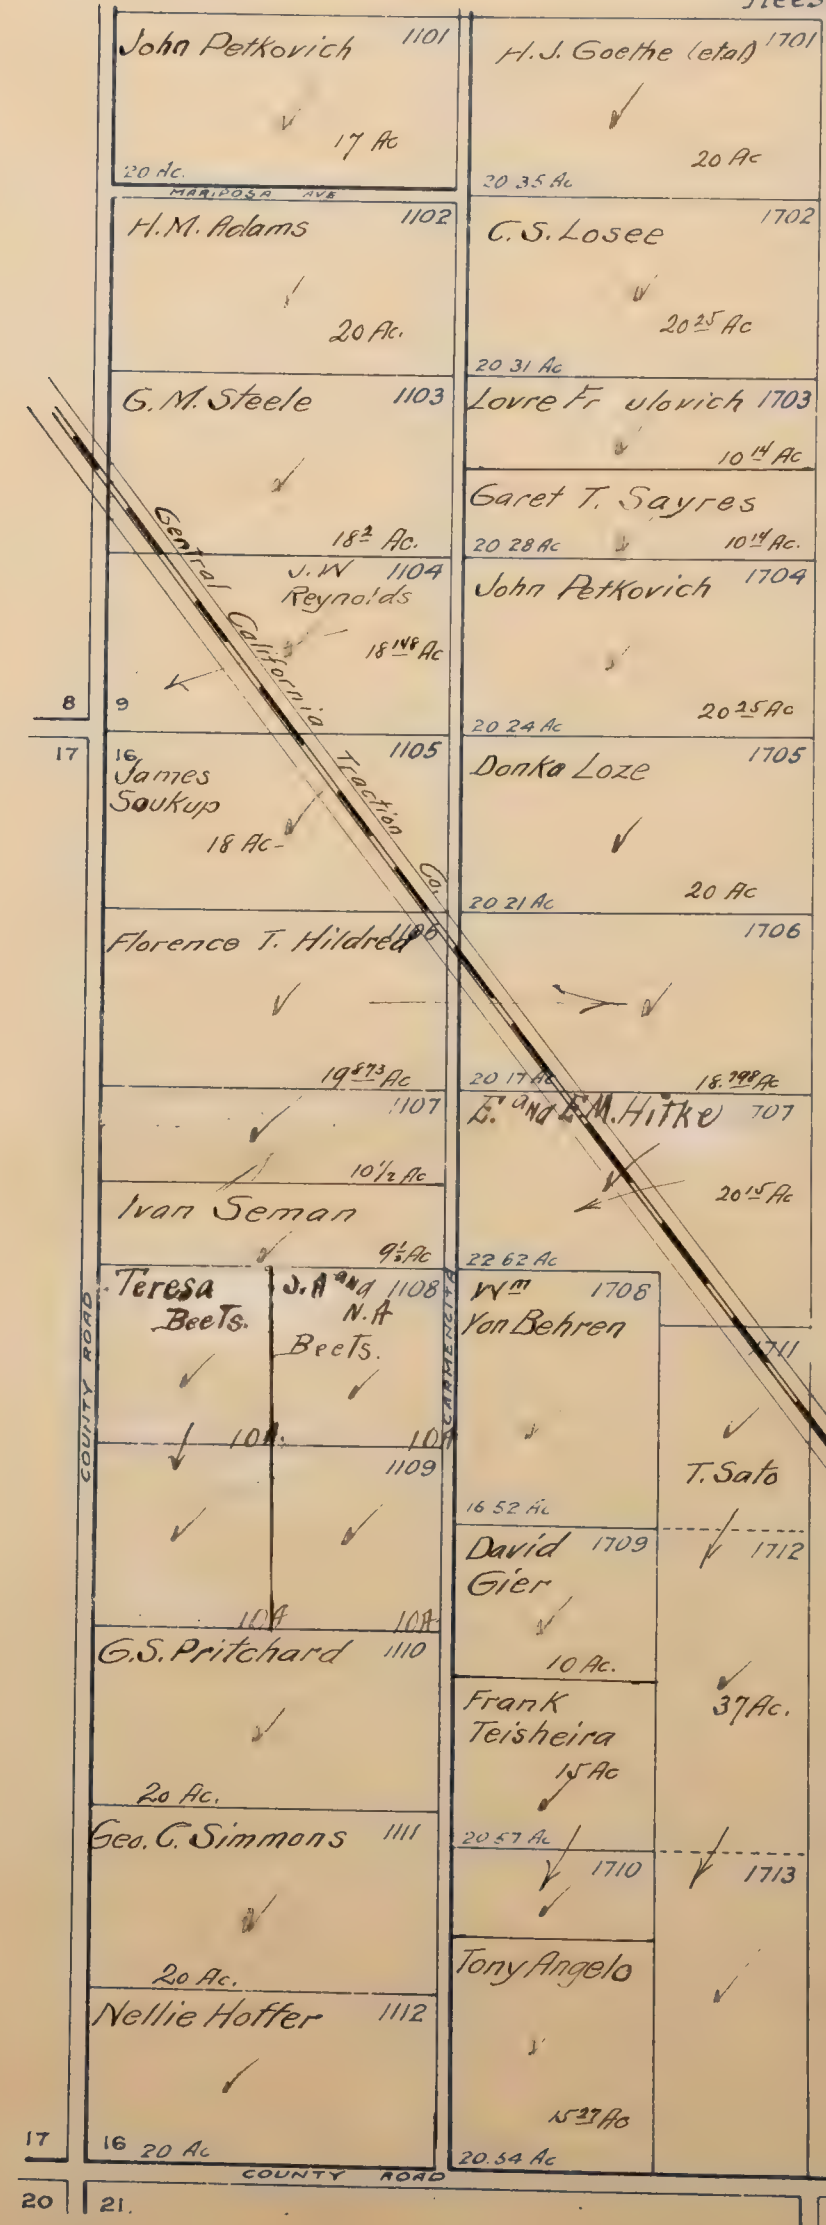 John Petkovich 1101
17 Ac
20 Ac.
MARIPOSA AVE
H.M. Adams 1102
20 Ac.
G.M. Steele 1103
18 2 Ac.
J.W 1104
Reynolds
18 148 Ac
8 9
17 16
1105
James
Soukup
18 Ac
Central California Traction Co.
Florence T. Hildred 1106
19 873 Ac
1107
10 1/2 Ac
Ivan Seman
9 1/2 Ac
Teresa
Beets.
10A.
J.A and 1108
N.A
Beets.
10A
1109
10A
10A
G.S. Pritchard 1110
20 Ac.
Geo. C. Simmons 1111
20 Ac.
Nellie Hoffer 1112
17 16
20 Ac
COUNTY ROAD
COUNTY ROAD
CARMENCITA
20 21.
H.J. Goethe (etal) 1701
20 Ac
20 35 Ac
C.S. Losee 1702
20 25 Ac
20 31 Ac
Lovre Fr ulovich 1703
10 14 Ac
Garet T. Sayres
20 28 Ac
10 14 Ac.
John Petkovich 1704
20 25 Ac
20 24 Ac
Donka Loze 1705
20 Ac
20 21 Ac
1706
20 17 Ac
18.798 Ac
E. and E M. Hitke 707
20 15 Ac
22 62 Ac
Wm 1708
Von Behren
16 52 Ac
1711
T. Sato
David 1709
Gier
10 Ac.
1712
37 Ac.
Frank
Teisheira
15 Ac
20 57 Ac
1710
1713
Tony Angelo
15 27 Ac
20.54 Ac